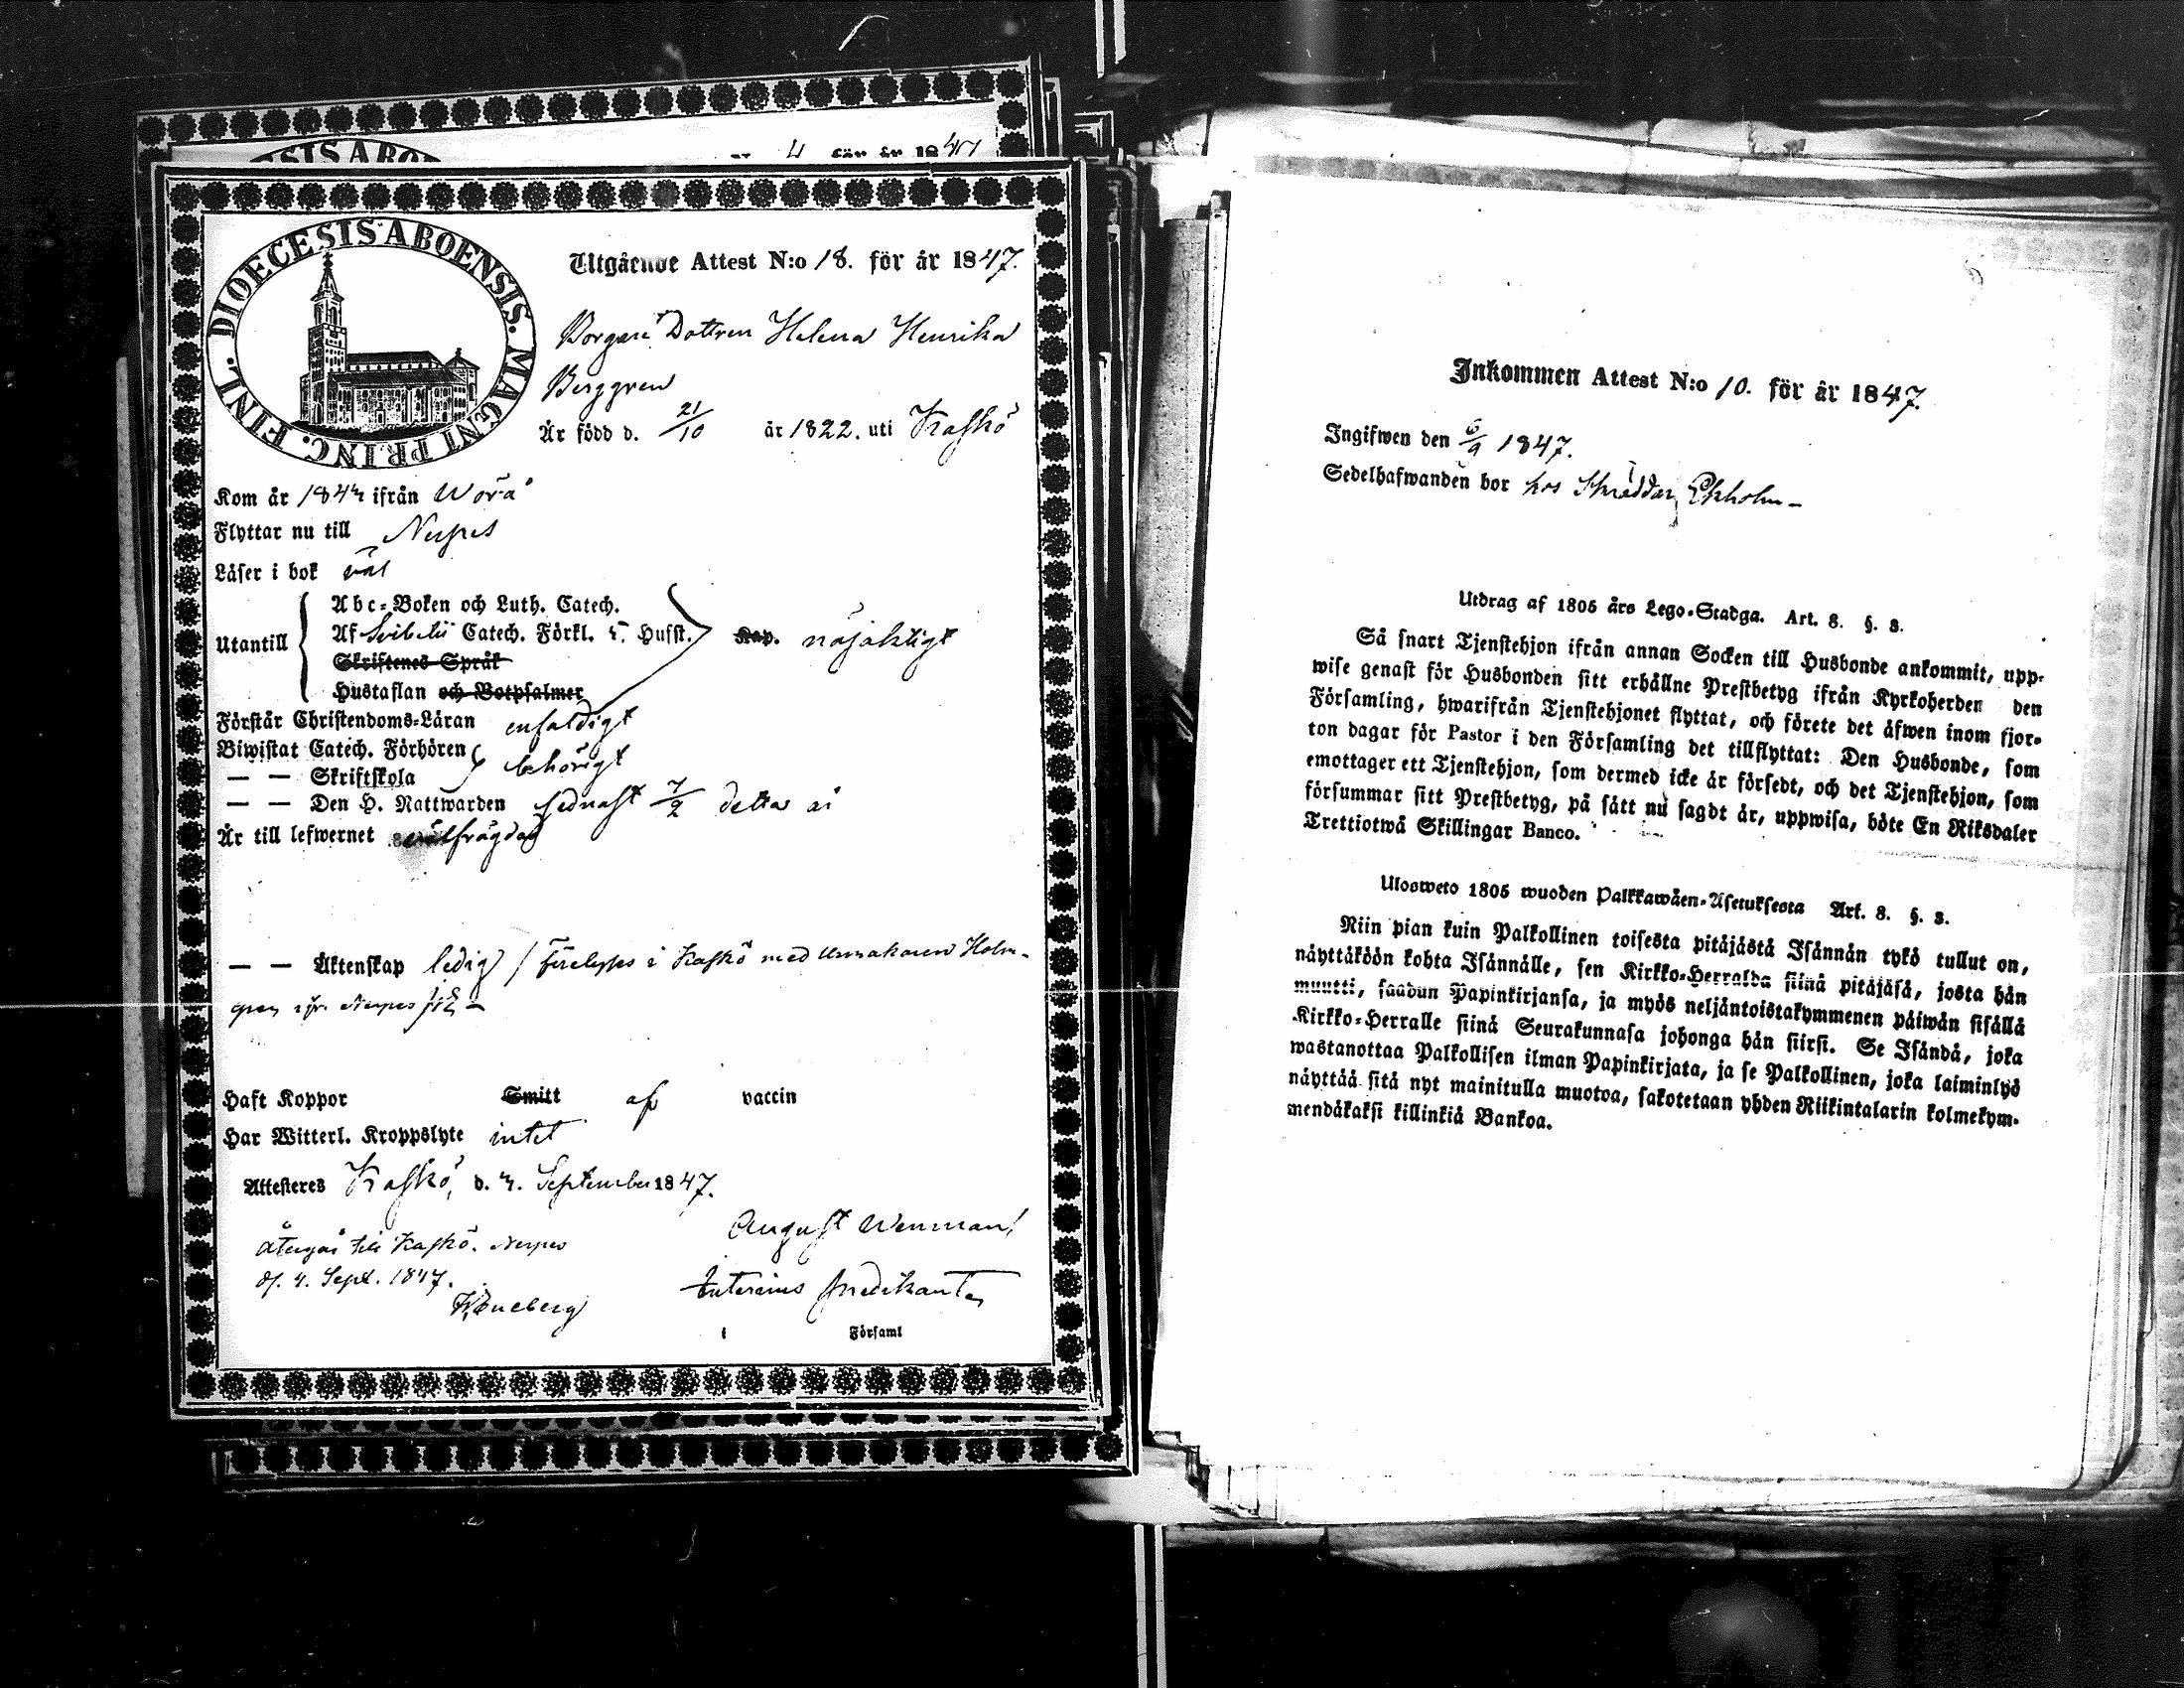 SIS ABO
N:o 4 för år 1847
DIOECESIS ABOENSIS. MAGNI PRINC. FINL.
Utgående Attest N:o 18. för år 1847.
Borgare Dottren Helena Henrika
Berggren
Är född d. 21/10 år 1822. uti Kaskö
Kom år 1844 ifrån Wörå
Flyttar nu till Nerpes
Läser i bok väl
Utantill
Abc-Boken och Luth. Catech.
Af Svibelii Catech. Förkl. Husst. Kap. nöjaktigt
Skriftenes Språk
Hustaflan och Botpsalmer
Förstår Christendoms-Läran enfaldigt
Biwistat Catech. Förhören
— — Skriftskola behörigt
— — Den H. Nattwarden sednast 7/2 detta år
Är till lefwernet wälfrägdad
— — Äktenskap ledig / Förelyses i Kaskö med Urmakaren Holm-
gren ifr. Nerpes
Haft Koppor Smitt af vaccin
Har Witterl. Kroppslyte intet
Attesteres Kaskö, d. 4. September 1847.
August Wenman
Återgår till Kaskö. Nerpes
d. 4. Sept. 1847.
Interims Predikant
i Församl
Inkommen Attest N:o 10. för år 1847.
Ingifwen den 6/9 1847.
Sedelhafwanden bor hos Skräddar Ekholm -
Utdrag af 1805 års Lego-Stadga. Art. 8. §. 3.
Så snart Tjenstehjon ifrån annan Socken till Husbonde ankommit, upp-
wise genast för Husbonden sitt erhållne Prestbetyg ifrån Kyrkoherden den
Församling, hwarifrån Tjenstehjonet flyttat, och förete det äfwen inom fjor-
ton dagar för Pastor i den Församling det tillflyttat: Den Husbonde, som
emottager ett Tjenstehjon, som dermed icke är försedt, och det Tjenstehjon, som
försummar sitt Prestbetyg, på sätt nu sagdt är, uppwisa, böte En Riksdaler
Trettiotwå Skillingar Banco.
Ulosweto 1805 wuoden Palkkawäen-Asetuksesta Art. 8. §. 3.
Niin pian kuin Palkollinen toisesta pitäjästä Isännän tykö tullut on,
näyttäköön kohta Isännälle, sen Kirkko-Herralda siinä pitäjäsä, josta hän
muutti, saadun Papinkirjansa, ja myös neljäntoistakymmenen päiwän sisällä
Kirkko-Herralle siinä Seurakunnasa johonga hän siirsi. Se Isändä, joka
wastanottaa Palkollisen ilman Papinkirjata, ja se Palkollinen, joka laiminlyö
näyttää sitä nyt mainitulla muotoa, sakotetaan yhden Riikintalarin kolmekym-
mendäkaksi killinkiä Bankoa.